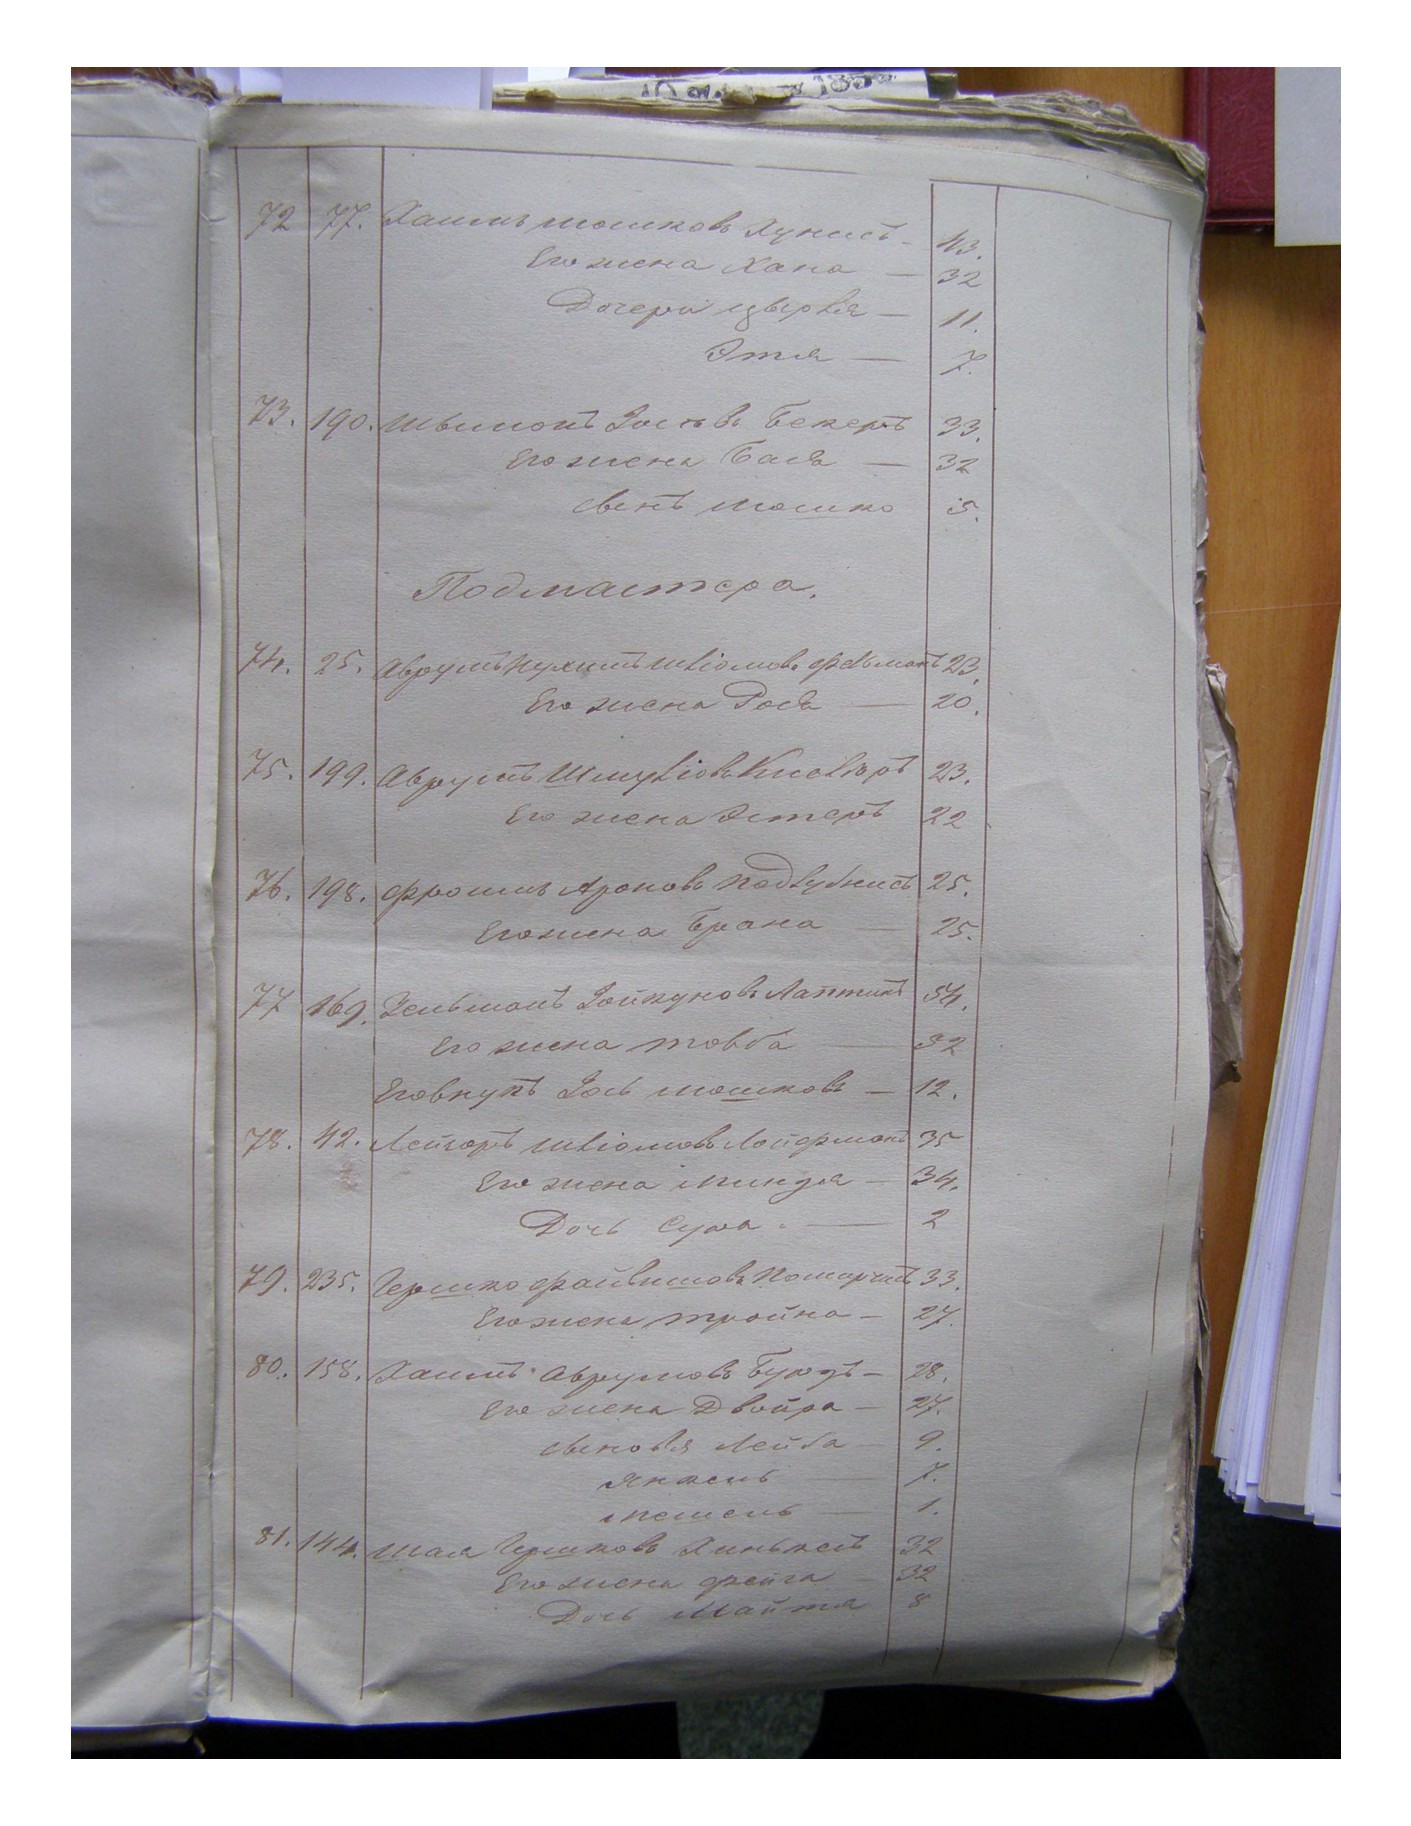 72 77. Хаимъ Мошковъ Хунисъ - 43.
Его жена Хана — 32
Дочери Цывля — 11.
Этля — 7.
73. 190. Шлиомъ Иосевъ Бекеръ 33.
Его жена Бася — 32
сынъ Мошко 5.
Подмастера.
74. 25. Аврумъ Нухимъ Шліомовъ 23.
Его жена Рося — 20.
75. 199. Аврумъ Шмуліовъ 23.
Его жена Эстеръ 22
76. 198. Фроимъ Ароновъ Подлубнисъ 25.
Его жена Брана — 25.
77 169. Зельманъ Зойкуновъ Лаптикъ 54.
Его жена Товба — 52
Его внукъ Іось Мошковъ — 12.
78. 42. Лейзоръ Шліомовъ Лойферманъ 35
Его жена Миндля — 34.
Дочь Сура. — 2
79. 235. Гершко Файвишовъ 33.
Его жена Тройна — 27.
80. 158. Хаимъ Аврумовъ — 28.
Его жена Двойра — 27.
сыновья Лейба — 9.
Янкель — 7.
— 1.
81. 144. Шая Гершковъ Хинькисъ 32
Его жена Фейга — 32
Дочь Майтя 8